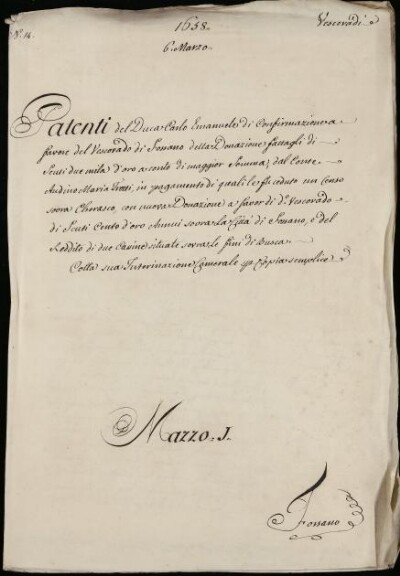 N.° 14.
1638.
Vescovadi
6. Marzo.
Patenti del Duca Carlo Emanuele di Confirmazione a
favore del Vescovado di Fossano della Donazione fattagli di
Scuti due mila d'oro a conto di maggior Somma, dal Conte
Audino Maria in pagamento di quali le fù ceduto un Censo
sovra Cherasco, con nuova Donazione a favor di d.° Vescovado
di Scuti Cento d'oro Annui sovra la Città di Fossano, e del
Reddito di due Cassine situate sovra le fini di Busca
Colla sua Interinazione Camerale per Copia semplice
Mazzo. 1.
Fossano